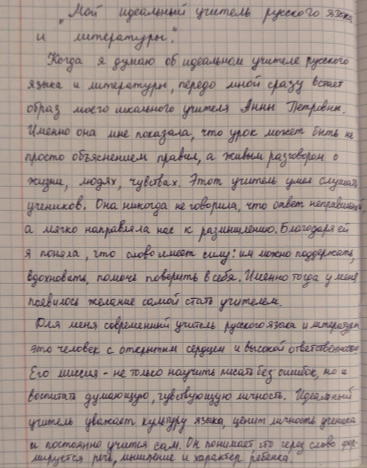 „Мой идеальный учитель русского языка
и литературы."
Когда я думаю об идеальном учителе русского
языка и литературы, передо мной сразу встает
образ моего школьного учителя Анны Петровны.
Именно она мне показала, что урок может быть не
просто объяснением правил, а живым разговором о
жизни, людях, чувствах. Этот учитель умел слушать
учеников. Она никогда не говорила, что ответ неправильный
а мягко направляла нас к размышлению. Благодаря ей
я поняла, что слово имеет силу: им можно поддержать,
вдохновить, помочь поверить в себя. Именно тогда у меня
появилось желание самой стать учителем.
Для меня современный учитель русского языка и литературы
это человек с открытым сердцем и высокой ответственностью
Его миссия - не только научить писать без ошибок, но и
воспитать думающую, чувствующую личность. Идеальный
учитель уважает культуру языка, ценит личность ученика
и постоянно учится сам. Он понимает что через слово фор-
мируется речь, мышление и характер ребенка